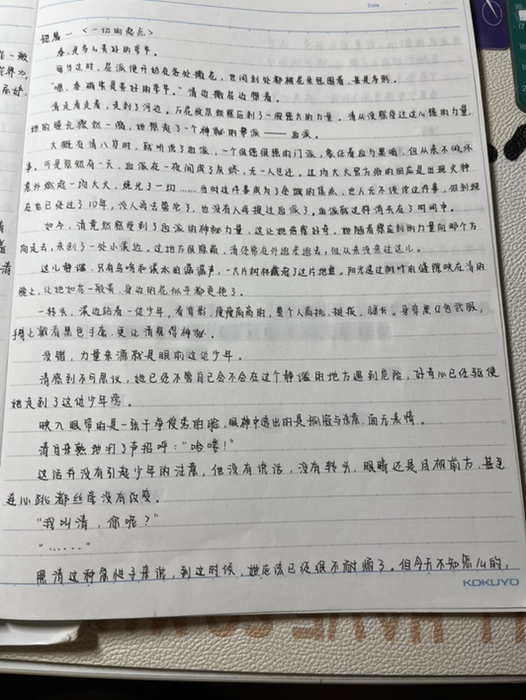 Date
短篇一《一切的起点》
春,是多么美好的季节。
每当这时,花派便开始在各处撒花,世间到处都被花束包围着,甚是奇形。
"嗯,春确实是美好的季节。"清边撒花边想着。
清走着走着,走到了河边。万花
忽然感应到了一股强大的力量。清从没感受过这么强的力量,
她的瞳孔骤然一缩,她想起了一个神秘的帮派——血派。
大概在清八岁时,就听说了血派,一个很强很强的门派,象征着血与黑暗,但从来不做坏
事。可是忽然有一天,血派在一夜间成了灰烬,无一人生还。这
出现火种
意外燃起一场大火,烧光了一切……当时这件事成为了全城的焦点,世人无不谈论这件事,但到现
在也已经过了10年,没人再去
了,也没有人再提过血派了,血派就这样消失在了时间中。
如今,清竟然感受到了血派的神秘力量,这让她倍感好奇。她随着感应到的力量向那个方
向走去,来到了一处小溪边。这地方很隐蔽,清经常在外边走逛去,但从来没来过这儿。
这儿静谧,只有鸟鸣和溪水的潺潺声,一大片树林藏起了这片地带。阳光透过树叶的缝隙映在清的
脸上,让她如花一般美,身边的花似乎都更艳了。
一转头,溪边站着一位少年,看背影,瘦瘦高高的,整个人高挑、挺拔、腿长。身穿黑红色武服,
手上戴着黑色手套,更让清觉得神秘。
没错,力量来源就是眼前这位少年。
清感到不可思议,她已经不管自己会不会在这个静谧的地方遇到危险,好奇心已经驱使
她走到了这位少年旁。
映入眼帘的是一张干净俊秀的脸,眼神中透出的是孤寂与凉意,面无表情。
清自来熟地打了声招呼:"哈喽!"
这话并没有引起少年的注意,他没有说话,没有转头,眼睛还是目视前方,甚至
连心跳都丝毫没有改变。
"我叫清,你呢?"
"……"
照清这种急性子来说,到这时候,她应该已经很不耐烦了。但今天不知怎么的,
KOKUYO